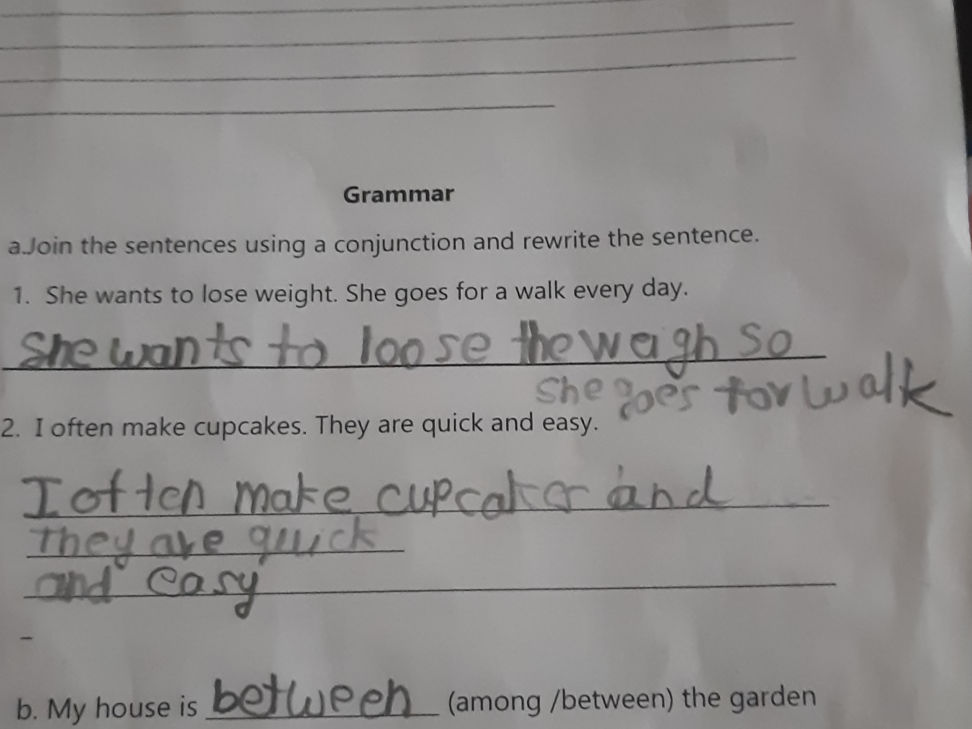 Grammar
a.Join the sentences using a conjunction and rewrite the sentence.
1. She wants to lose weight. She goes for a walk every day.
She wants to loose the weigh so
she goes for walk
2. I often make cupcakes. They are quick and easy.
I often make cupcakes and
they are quick
and easy
b. My house is between (among /between) the garden